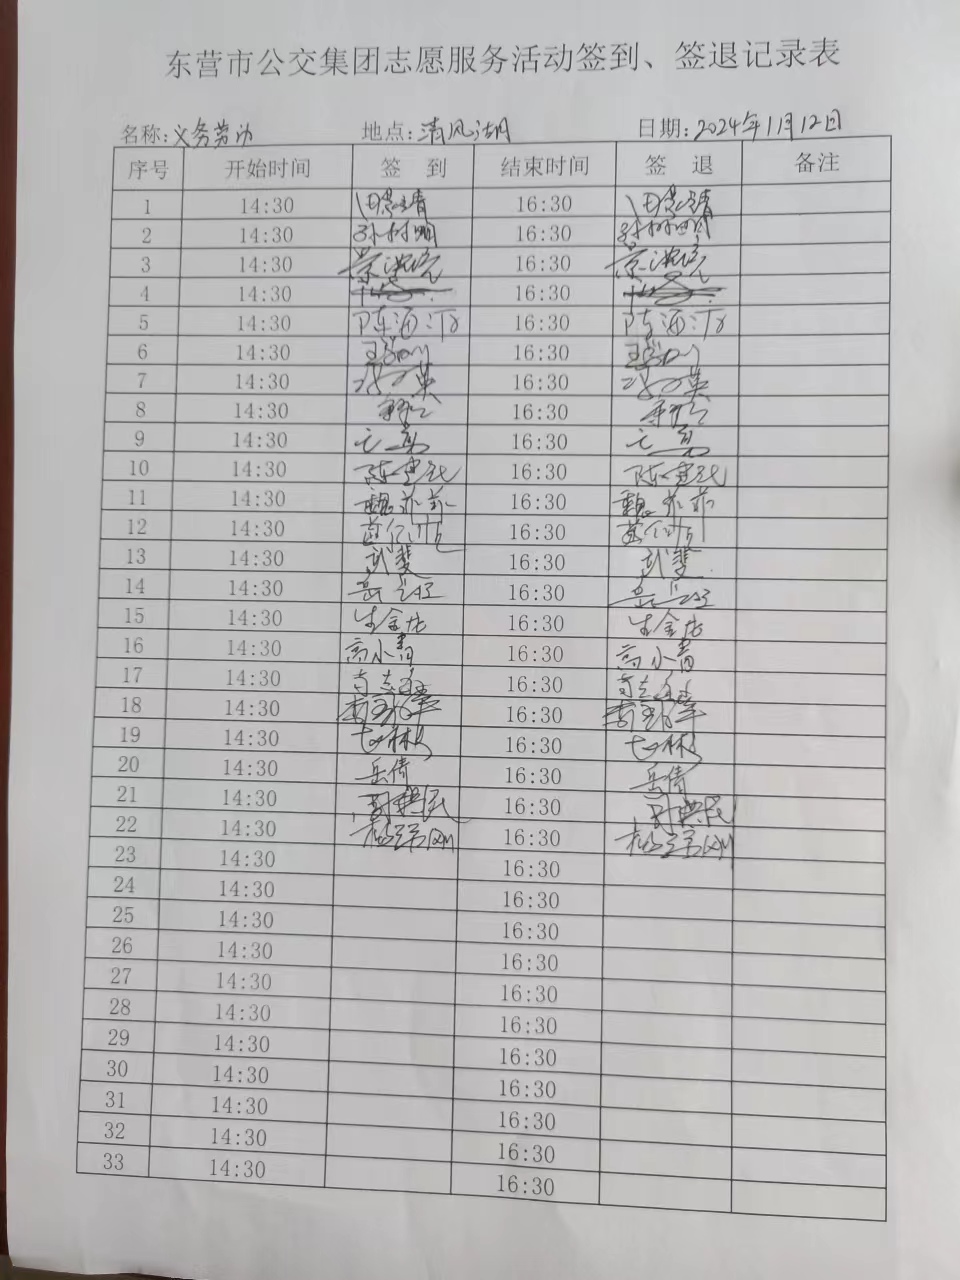 东营市公交集团志愿服务活动签到、签退记录表
名称:义务劳动 地点:清风湖 日期:2024年11月12日
序号 开始时间 签 到 结束时间 签 退 备注
1 14:30 16:30
2 14:30 孙树明 16:30 孙树明
3 14:30 16:30
4 14:30 16:30
5 14:30 16:30
6 14:30 16:30
7 14:30 16:30
8 14:30 16:30
9 14:30 16:30
10 14:30 陈建民 16:30 陈建民
11 14:30 魏菲菲 16:30 魏菲菲
12 14:30 16:30
13 14:30 武斐 16:30 武斐
14 14:30 16:30
15 14:30 16:30
16 14:30 高小青 16:30 高小青
17 14:30 16:30
18 14:30 16:30
19 14:30 16:30
20 14:30 岳倩 16:30 岳倩
21 14:30 16:30
22 14:30 16:30
23 14:30 16:30
24 14:30 16:30
25 14:30 16:30
26 14:30 16:30
27 14:30 16:30
28 14:30 16:30
29 14:30 16:30
30 14:30 16:30
31 14:30 16:30
32 14:30 16:30
33 14:30 16:30